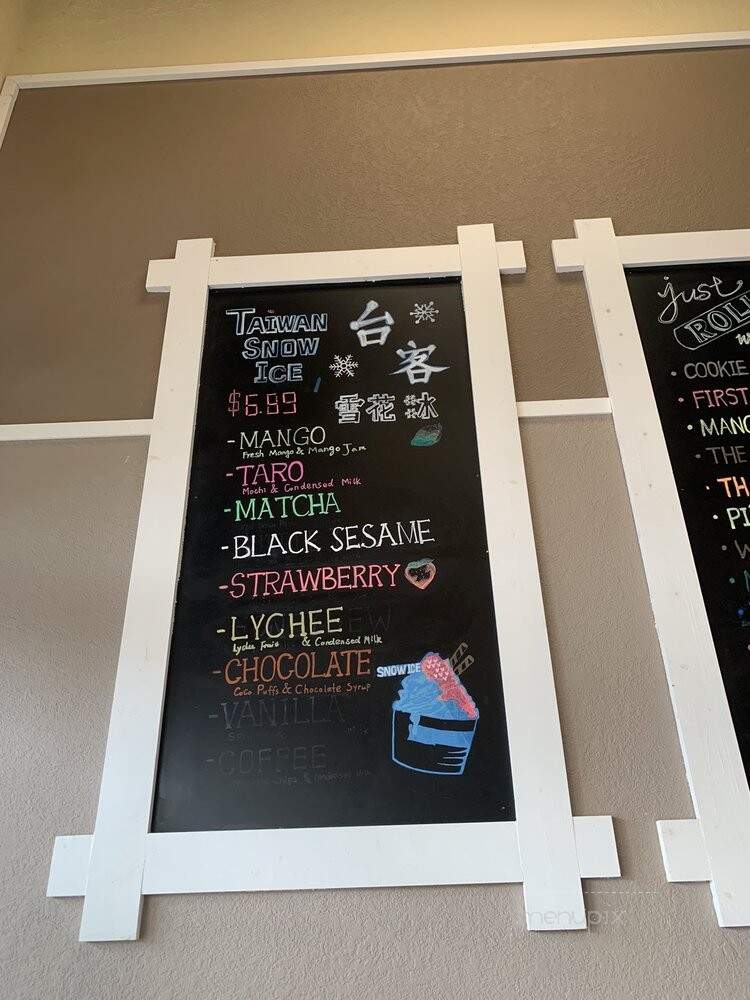 TAIWAN
SNOW
ICE
台
客
雪花冰
$6.89
-MANGO
Fresh Mango & Mango Jam
-TARO
Mochi & Condensed Milk
-MATCHA
-BLACK SESAME
-STRAWBERRY
-LYCHEE
& Condensed Milk
-CHOCOLATE
CoCo Puffs & Chocolate Syrup
-VANILLA
-COFFEE
SNOW ICE
just
ROLL
• COOKIE
• FIRST
• MANG
• THE
• TH
• PI
menupix